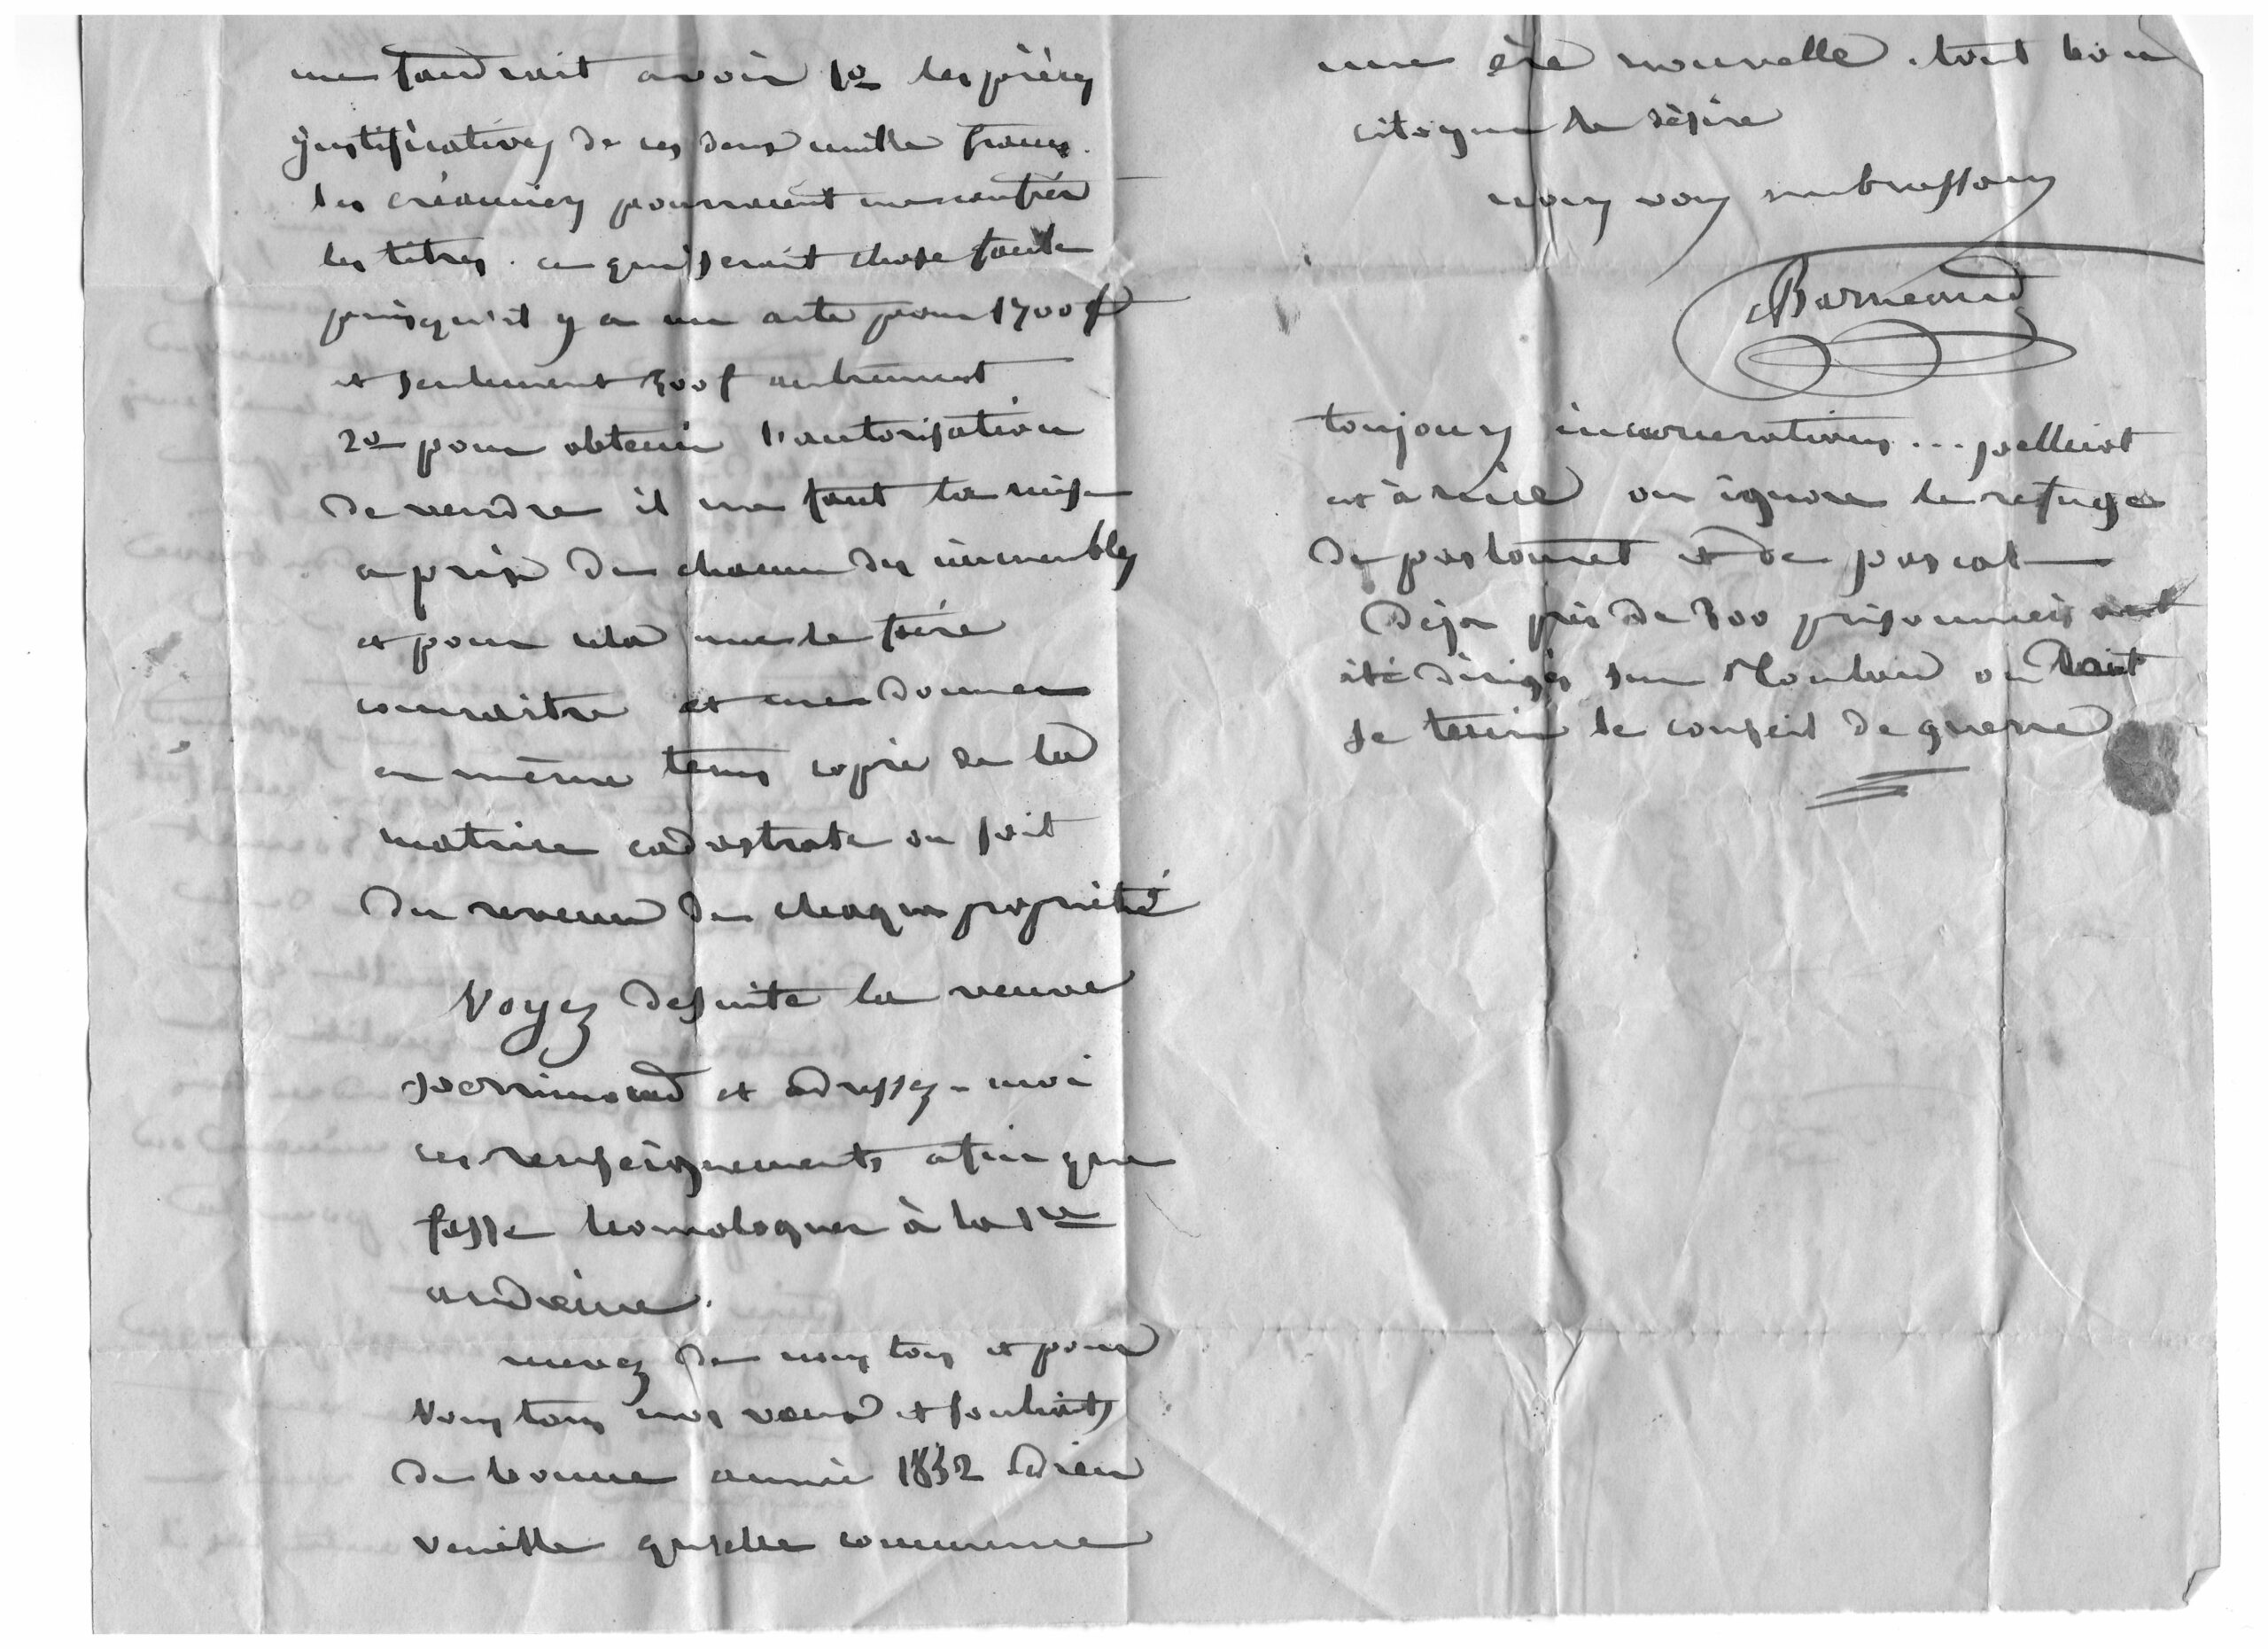 me faudrait avoir 1o les pièces
justificatives de ces deux mille francs.
les créanciers pourraient me montrer
les titres. ce qui serait chose facile
puisqu'il y a un acte pour 1700 f
et seulement 300 f autrement
2o pour obtenir l'autorisation
de vendre il me faut la mise
a prix de chacun des immeubles
et pour cela me le faire
connaitre et me donner
en même tems copie de la
matrice cadastrale ou soit
du revenu de chaque propriété
Voyez desuite la veuve
et adressez-moi
ces renseignements afin que
fasse homologuer à la 1re
audience.
recevez de nous tous et pour
vous tous nos vœux et souhaits
de bonne année 1852 Dieu
veuille qu'elle commence
une ère nouvelle. tout bon
citoyen le désire
nous vous embrassons
Barneaud
toujours incarcerations... pellicot
est à nice on ignore le refuge
de pastouret et de pascal
Deja près de 300 prisonniers ont
été dirigés sur Toulon ou doit
se tenir le conseil de guerre